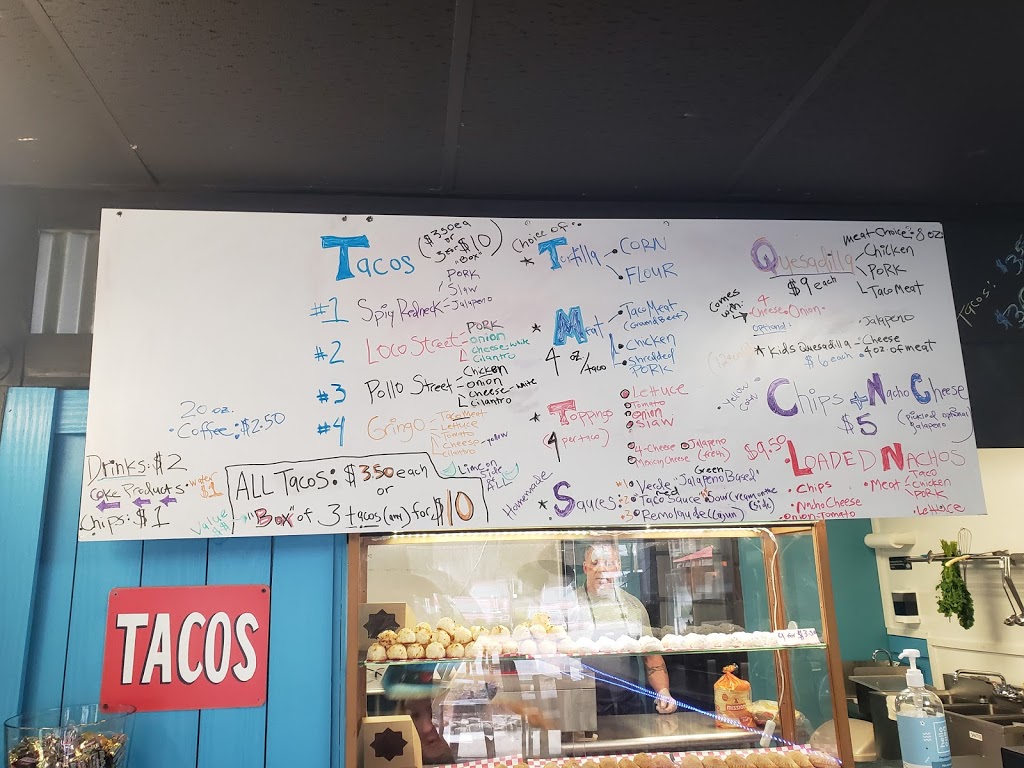 Tacos
($3.50 ea
or
$10
"Box"
#1 Spicy Redneck
PORK
Slaw
Jalapeno
#2 Loco Street
PORK
onion
cheese-white
cilantro
#3 Pollo Street
Chicken
onion
cheese-white
cilantro
#4 Gringo
Taco Meat
Lettuce
Tomato
Cheese-yellow
cilantro
Lime on
side
20 oz.
Coffee: $2.50
Drinks: $2
Coke Products
water
$1
Chips: $1
Value
ALL Tacos: $3.50 each
or
"Box" of 3 tacos (any) for $10
Choice of:
* Tortilla
CORN
FLOUR
* Meat
4 oz/taco
Taco Meat
(Ground Beef)
Chicken
shredded
PORK
* Toppings
4 (per taco)
Lettuce
Tomato
onion
slaw
4-Cheese
Mexican Cheese
Jalapeno
(fresh)
Homemade
* Sauces
#1 Verde: Green Jalapeno Based
#2 Taco Sauce
med
Sour Cream on the
(side)
#3 Remoulaude (Cajun)
Quesadilla
$9 each
meat choice: 8 oz
Chicken
PORK
Taco Meat
comes
with:
4
Cheese Onion
optional:
Jalapeno
* Kids Quesadilla
$6 each
Cheese
4 oz of meat
Chips + Nacho Cheese
$5
(pickled optional
jalapeno)
$9.50
LOADED NACHOS
Chips
Nacho Cheese
Onion-Tomato
Meat
Taco
Chicken
PORK
Lettuce
Tacos:
TACOS
mission
hello